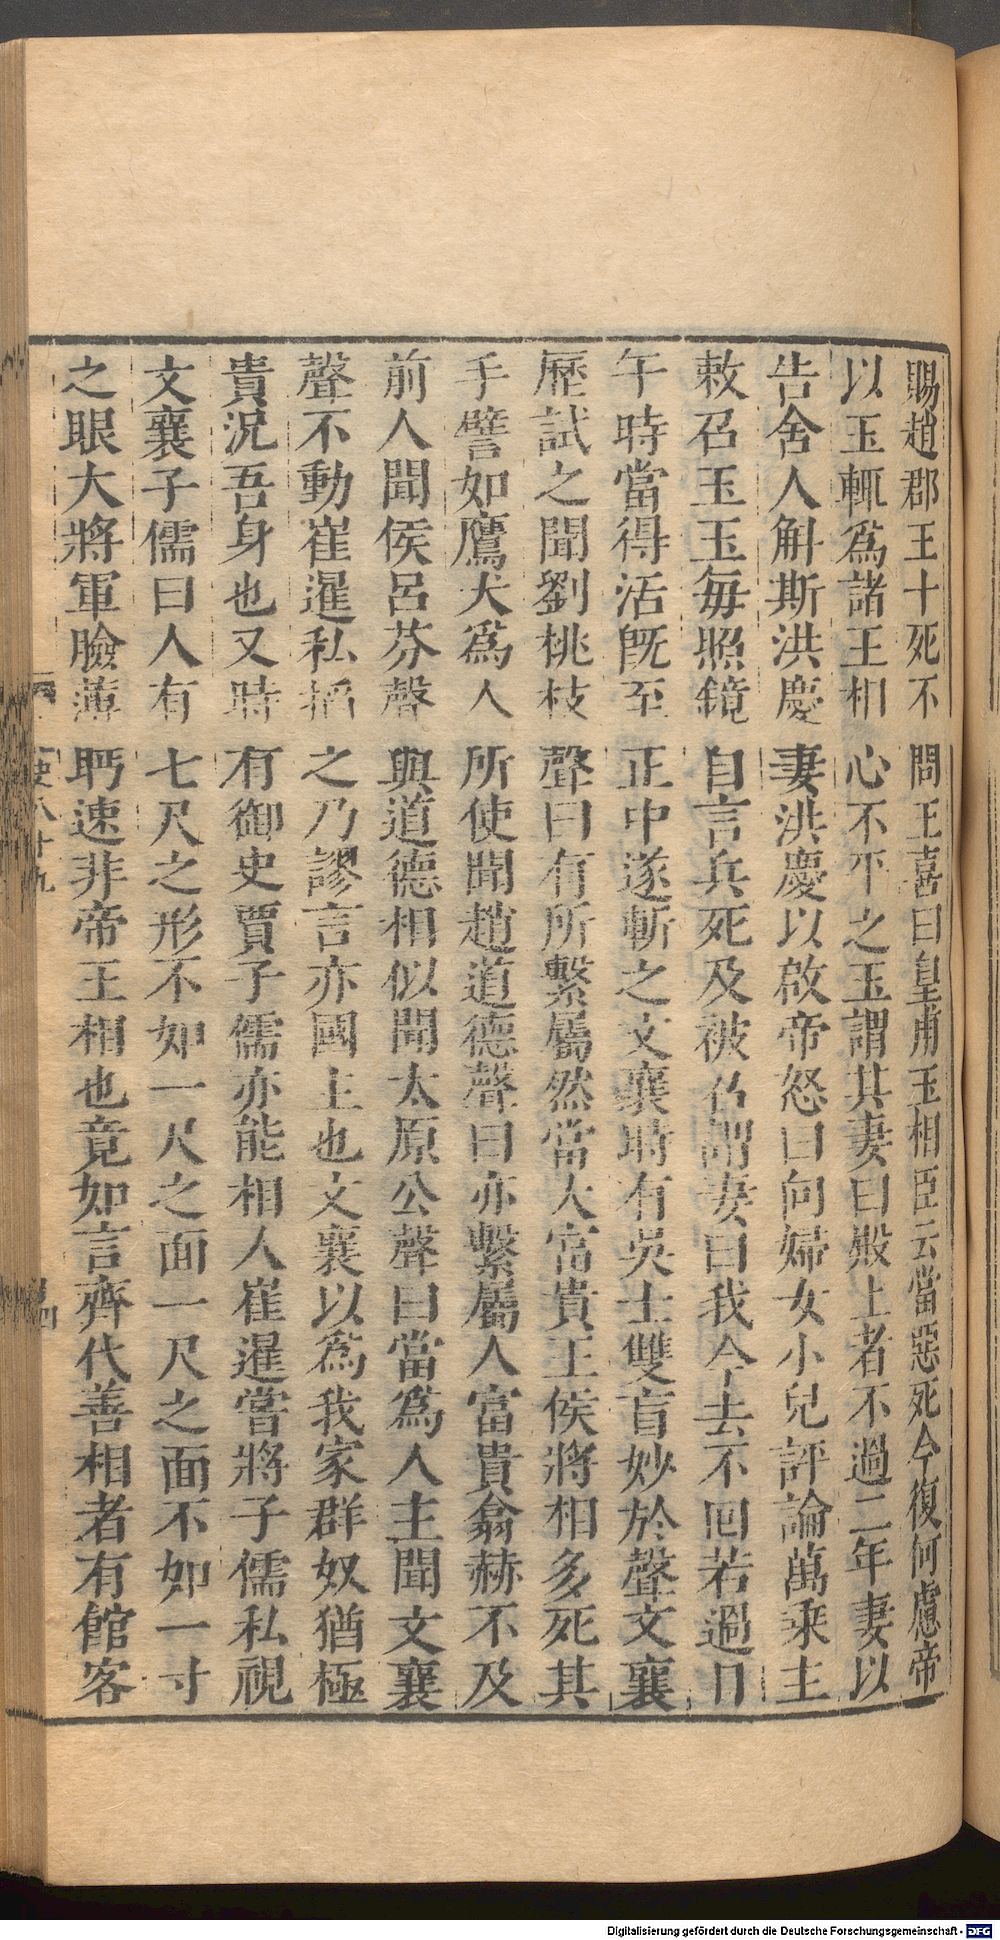 賜趙郡王十死不問王喜曰皇甫玉相臣云當惡死今復何慮帝
以玉輒爲諸王相心不平之玉謂其妻曰殿上者不過二年妻以
告舍人斛斯洪慶妻洪慶以啟帝怒曰向婦女小兒評論萬乘主
敕召玉玉每照鏡自言兵死及被召謂妻曰我今去不回若過日
午時當得活旣至正中遂斬之文襄時有吳士雙盲妙於聲文襄
歷試之聞劉桃枝聲曰有所繫屬然當大富貴王侯將相多死其
手譬如鷹犬爲人所使聞趙道德聲曰亦繫屬人富貴翕赫不及
前人聞侯呂芬聲與道德相似聞太原公聲曰當爲人主聞文襄
聲不動崔暹私搯之乃謬言亦國主也文襄以爲我家群奴猶極
貴況吾身也又時有御史賈子儒亦能相人崔暹嘗將子儒私視
文襄子儒曰人有七尺之形不如一尺之面一尺之面不如一寸
之眼大將軍臉薄眄速非帝王相也竟如言齊代善相者有館客
史八十九
四
Digitalisierung gefördert durch die Deutsche Forschungsgemeinschaft - DFG